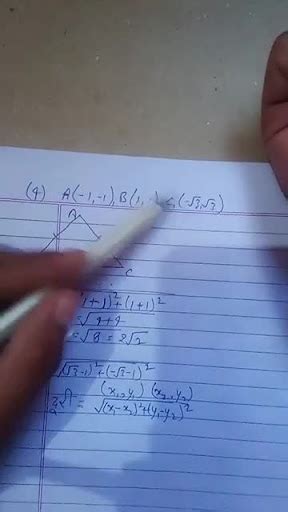 (4) A(-1,-1), B(1, C(-√3,√3)
A
C
1+1)²+(1+1)²
=√4+4
=√8 = 2√2
√(√3-1)²+(-√3-1)²
(x₁,y₁) (x₂,y₂)
= √(x₁-x₂)²+(y₁-y₂)²